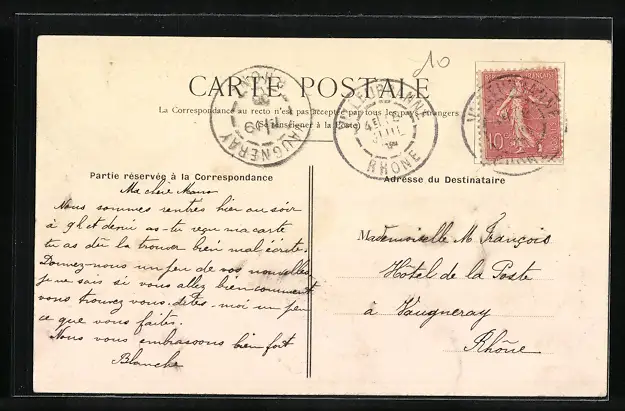 10
CARTE POSTALE
La Correspondance au recto n'est pas acceptée par tous les pays étrangers
(Se renseigner à la Poste)
VAUGNERAY
RHONE
VILLEURBANNE
RHONE
FRANÇAISE
10
Partie réservée à la Correspondance
Adresse du Destinataire
Ma chère Mano
Nous sommes rentrés hier au soir
à 9h et demi as-tu reçu ma carte
tu as dû la trouver bien mal écrite.
Donnez-nous un peu de vos nouvelles
je ne sais si vous allez bien comment
vous trouvez vous. dites-moi un peu
ce que vous faites.
Nous vous embrassons bien fort
Blanche
Mademoiselle M François
Hôtel de la Poste
à Vaugneray
Rhône